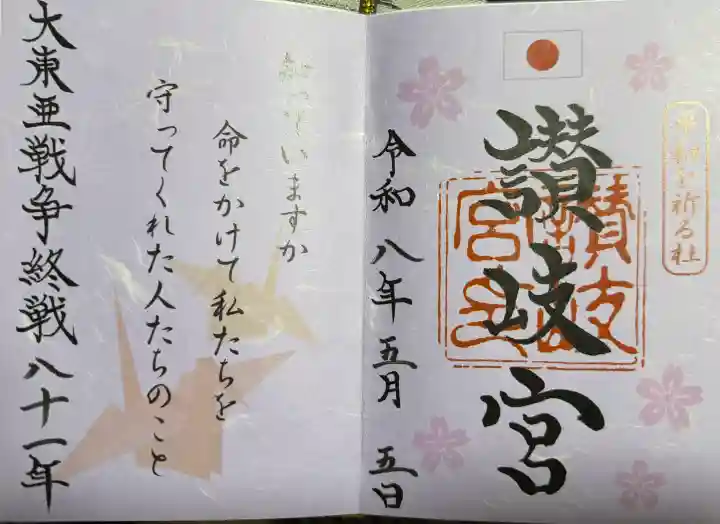 平和を祈る社
讃岐宮
令和八年五月五日
知っていますか
命をかけて私たちを
守ってくれた人たちのこと
大東亜戦争終戦八十一年